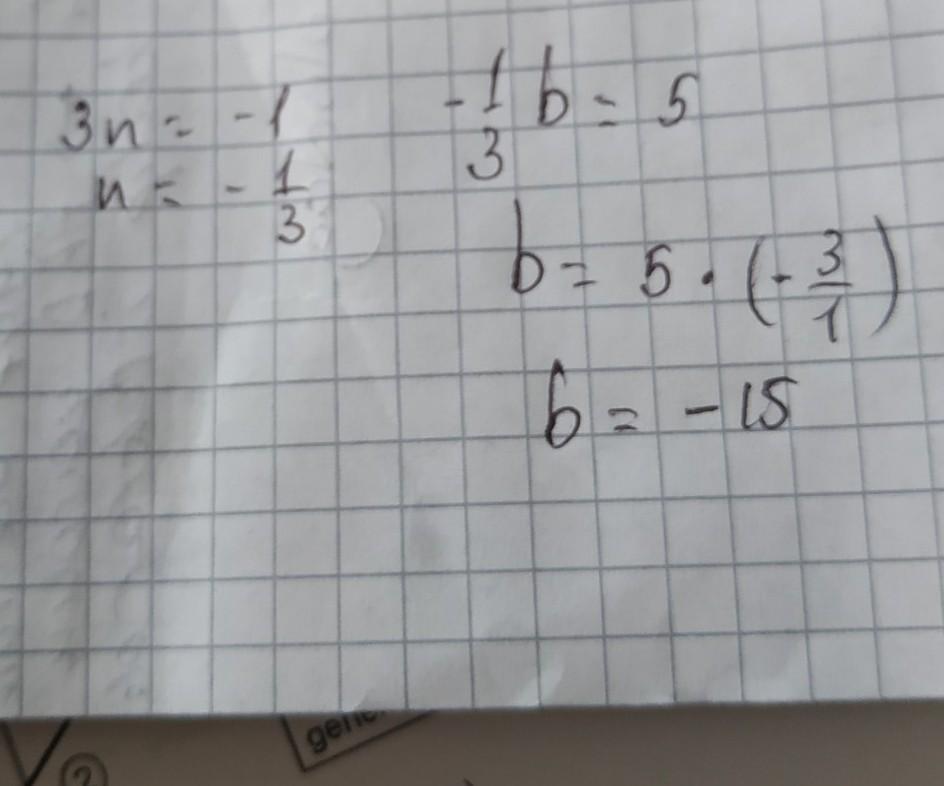 3n = -1
n = - 1/3
-1/3 b = 5
b = 5 · (- 3/1)
b = -15
2